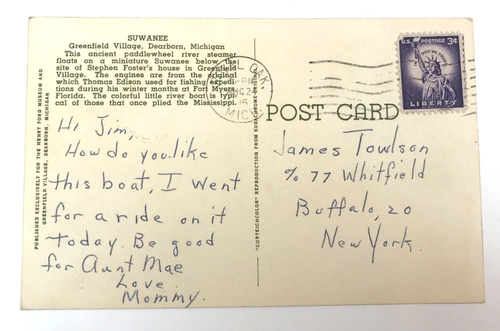 SUWANEE
Greenfield Village, Dearborn, Michigan
This ancient paddlewheel river steamer
floats on a miniature Suwanee below the
site of Stephen Foster's house in Greenfield
Village. The engines are from the original
which Thomas Edison used for fishing expedi-
tions during his winter months at Fort Myers,
Florida. The colorful little river boat is typi-
cal of those that once plied the Mississippi.
PUBLISHED EXCLUSIVELY FOR THE HENRY FORD MUSEUM AND
GREENFIELD VILLAGE, DEARBORN, MICHIGAN
Hi Jim,
How do you like
this boat, I went
for a ride on it
today. Be good
for Aunt Mae
Love
Mommy.
OAK
MICH
U.S. POSTAGE 3¢
IN GOD WE TRUST
LIBERTY
POST CARD
"CURTEICHCOLOR" REPRODUCTION FROM
James Towlson
% 77 Whitfield
Buffalo, 20
New York.